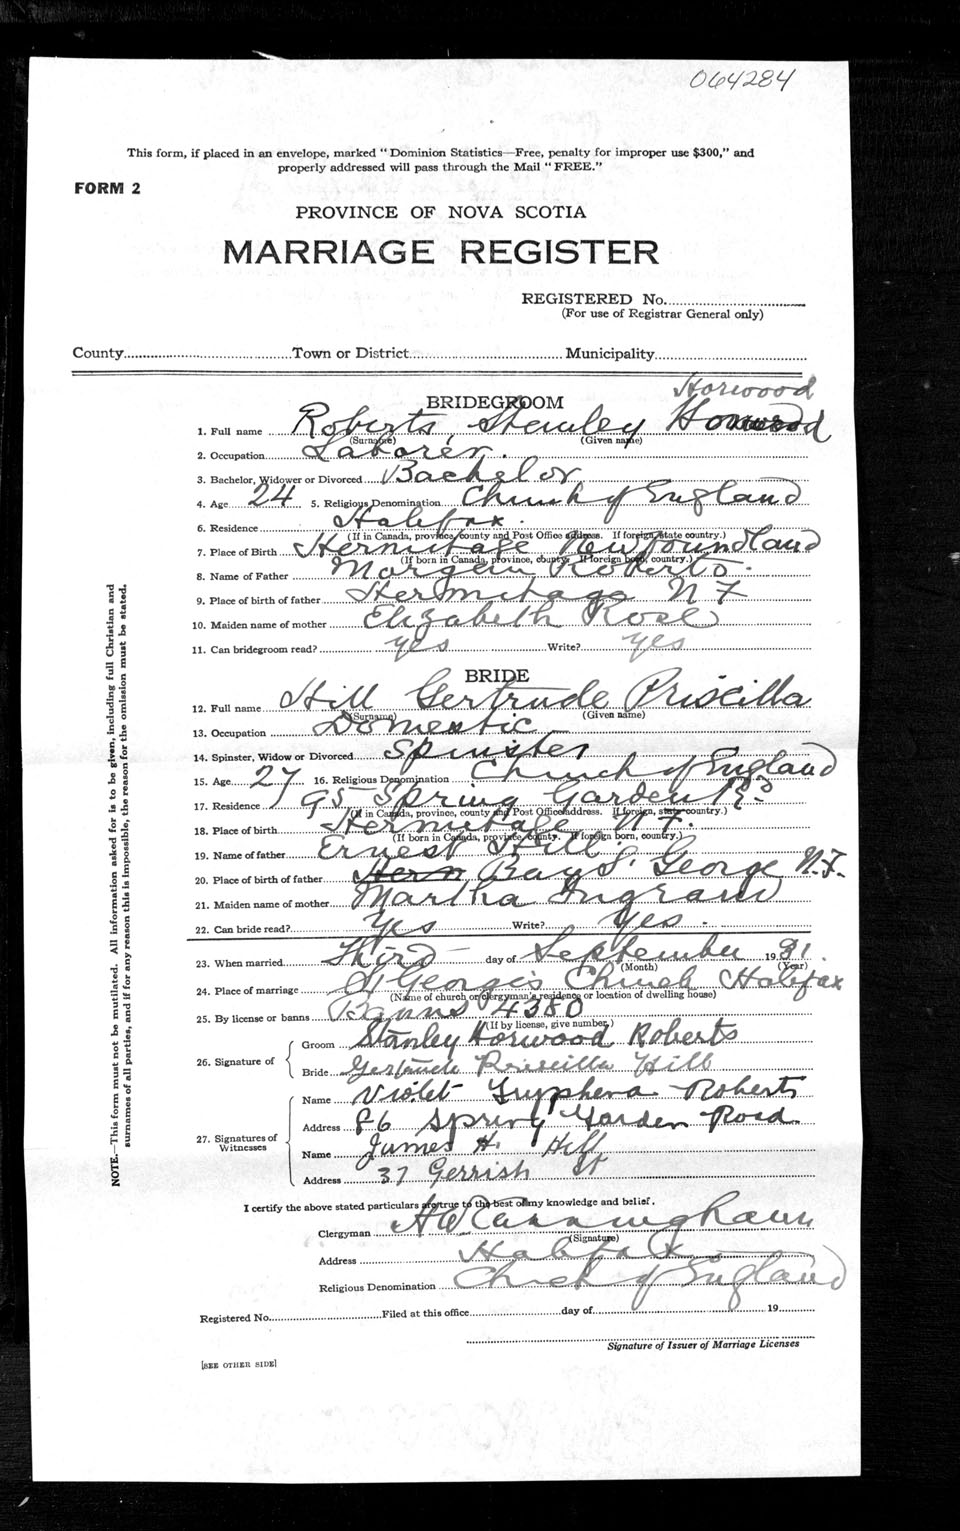 064284
This form, if placed in an envelope, marked "Dominion Statistics—Free, penalty for improper use $300," and
properly addressed will pass through the Mail "FREE."
FORM 2
PROVINCE OF NOVA SCOTIA
MARRIAGE REGISTER
REGISTERED No.
(For use of Registrar General only)
County Town or District Municipality
Horwood
BRIDEGROOM
1. Full name Roberts, Stanley Horwood
(Surname) (Given name)
2. Occupation Laborer.
3. Bachelor, Widower or Divorced Bachelor
4. Age 24 5. Religious Denomination Church of England
6. Residence Halifax.
(If in Canada, province, county and Post Office address. If foreign, state country.)
7. Place of Birth Hermitage Newfoundland
(If born in Canada, province, county. If foreign born, country.)
8. Name of Father Roberts.
9. Place of birth of father Hermitage N F
10. Maiden name of mother Elizabeth Rose
11. Can bridegroom read? yes Write? yes
BRIDE
12. Full name Hill Gertrude Priscilla
(Surname) (Given name)
13. Occupation Domestic
14. Spinster, Widow or Divorced Spinster
15. Age 27 16. Religious Denomination Church of England
17. Residence 95 Spring Garden Rd
(If in Canada, province, county and Post Office address. If foreign, state country.)
18. Place of birth Hermitage N.F.
(If born in Canada, province, county. If foreign born, country.)
19. Name of father Ernest Hill.
20. Place of birth of father Herm Bay St George N.F.
21. Maiden name of mother Martha Ingram
22. Can bride read? Yes Write? yes.
23. When married Third day of September 1931.
(Month) (Year)
24. Place of marriage St Georges Church Halifax
(Name of church or clergyman's residence or location of dwelling house)
25. By license or banns Banns 4380
(If by license, give number.)
26. Signature of Groom Stanley Horwood Roberts
Bride Gertrude Priscilla Hill
27. Signatures of Witnesses Name Violet Tryphena Roberts
Address 86 Spring Garden Road
Name James H. Hill
Address 37 Gerrish St
I certify the above stated particulars are true to the best of my knowledge and belief.
Clergyman H W Cunningham
(Signature)
Address Halifax
Religious Denomination Church of England
Registered No. Filed at this office day of 19
Signature of Issuer of Marriage Licenses
[SEE OTHER SIDE]
NOTE.—This form must not be mutilated. All information asked for is to be given, including full Christian and
surnames of all parties, and if for any reason this is impossible, the reason for the omission must be stated.